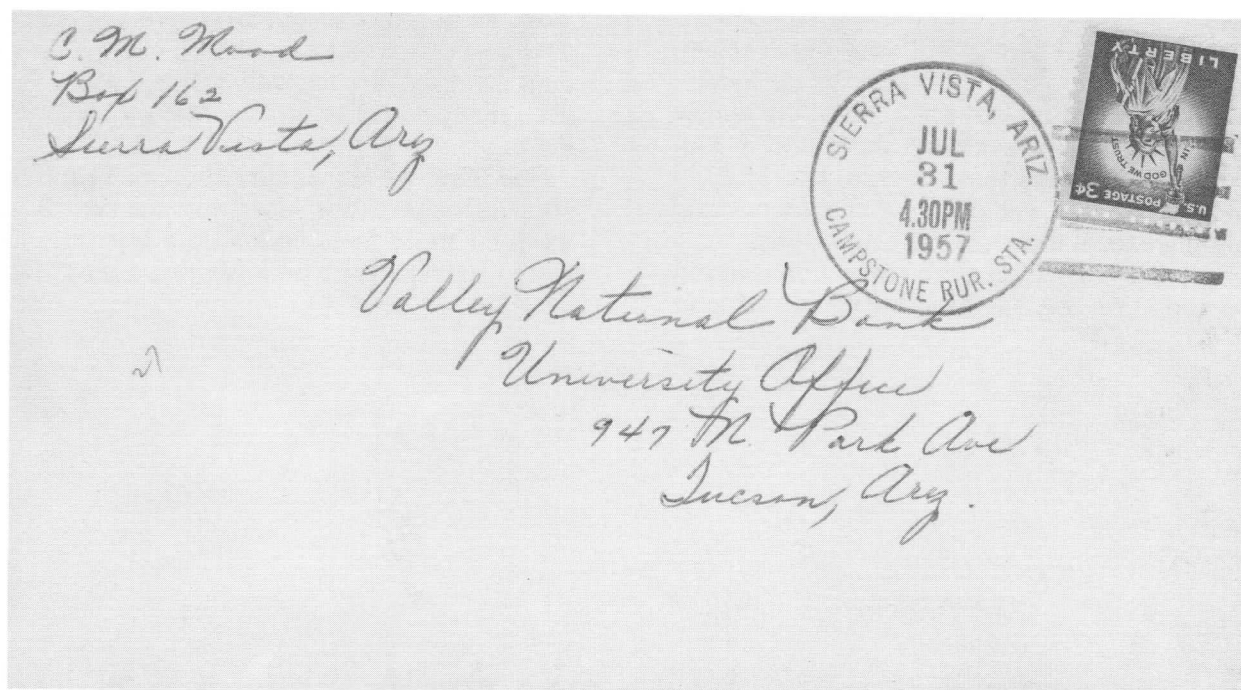 C. M. Mood
Box 162
Sierra Vista, Ariz
SIERRA VISTA, ARIZ.
JUL
31
4.30PM
1957
CAMPSTONE RUR. STA.
LIBERTY
IN GOD WE TRUST
U.S. POSTAGE 3¢
Valley National Bank
University Office
947 N. Park Ave
Tucson, Ariz.